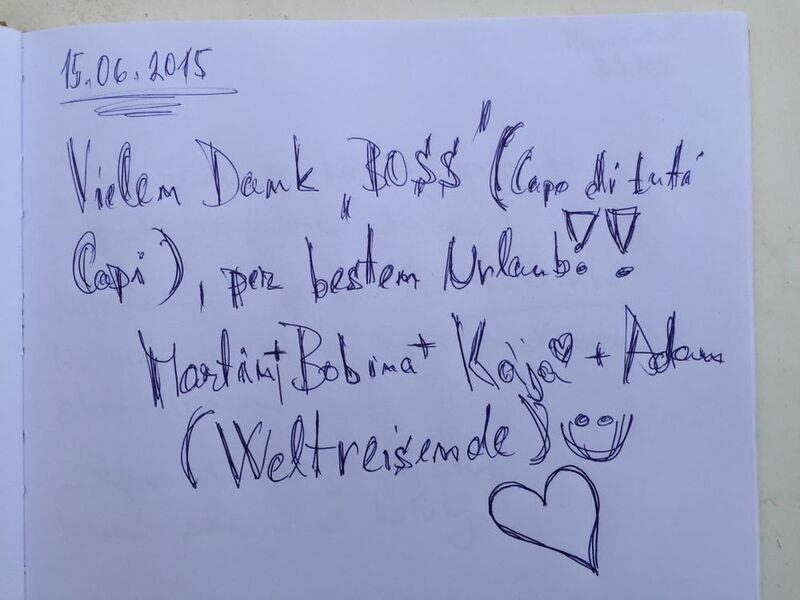 15.06.2015
Vielen Dank „BO$$" (Capo di tutti
Capi), per besten Urlaub!!
Martin + Bobina + Kaja + Adam
(Weltreisende)